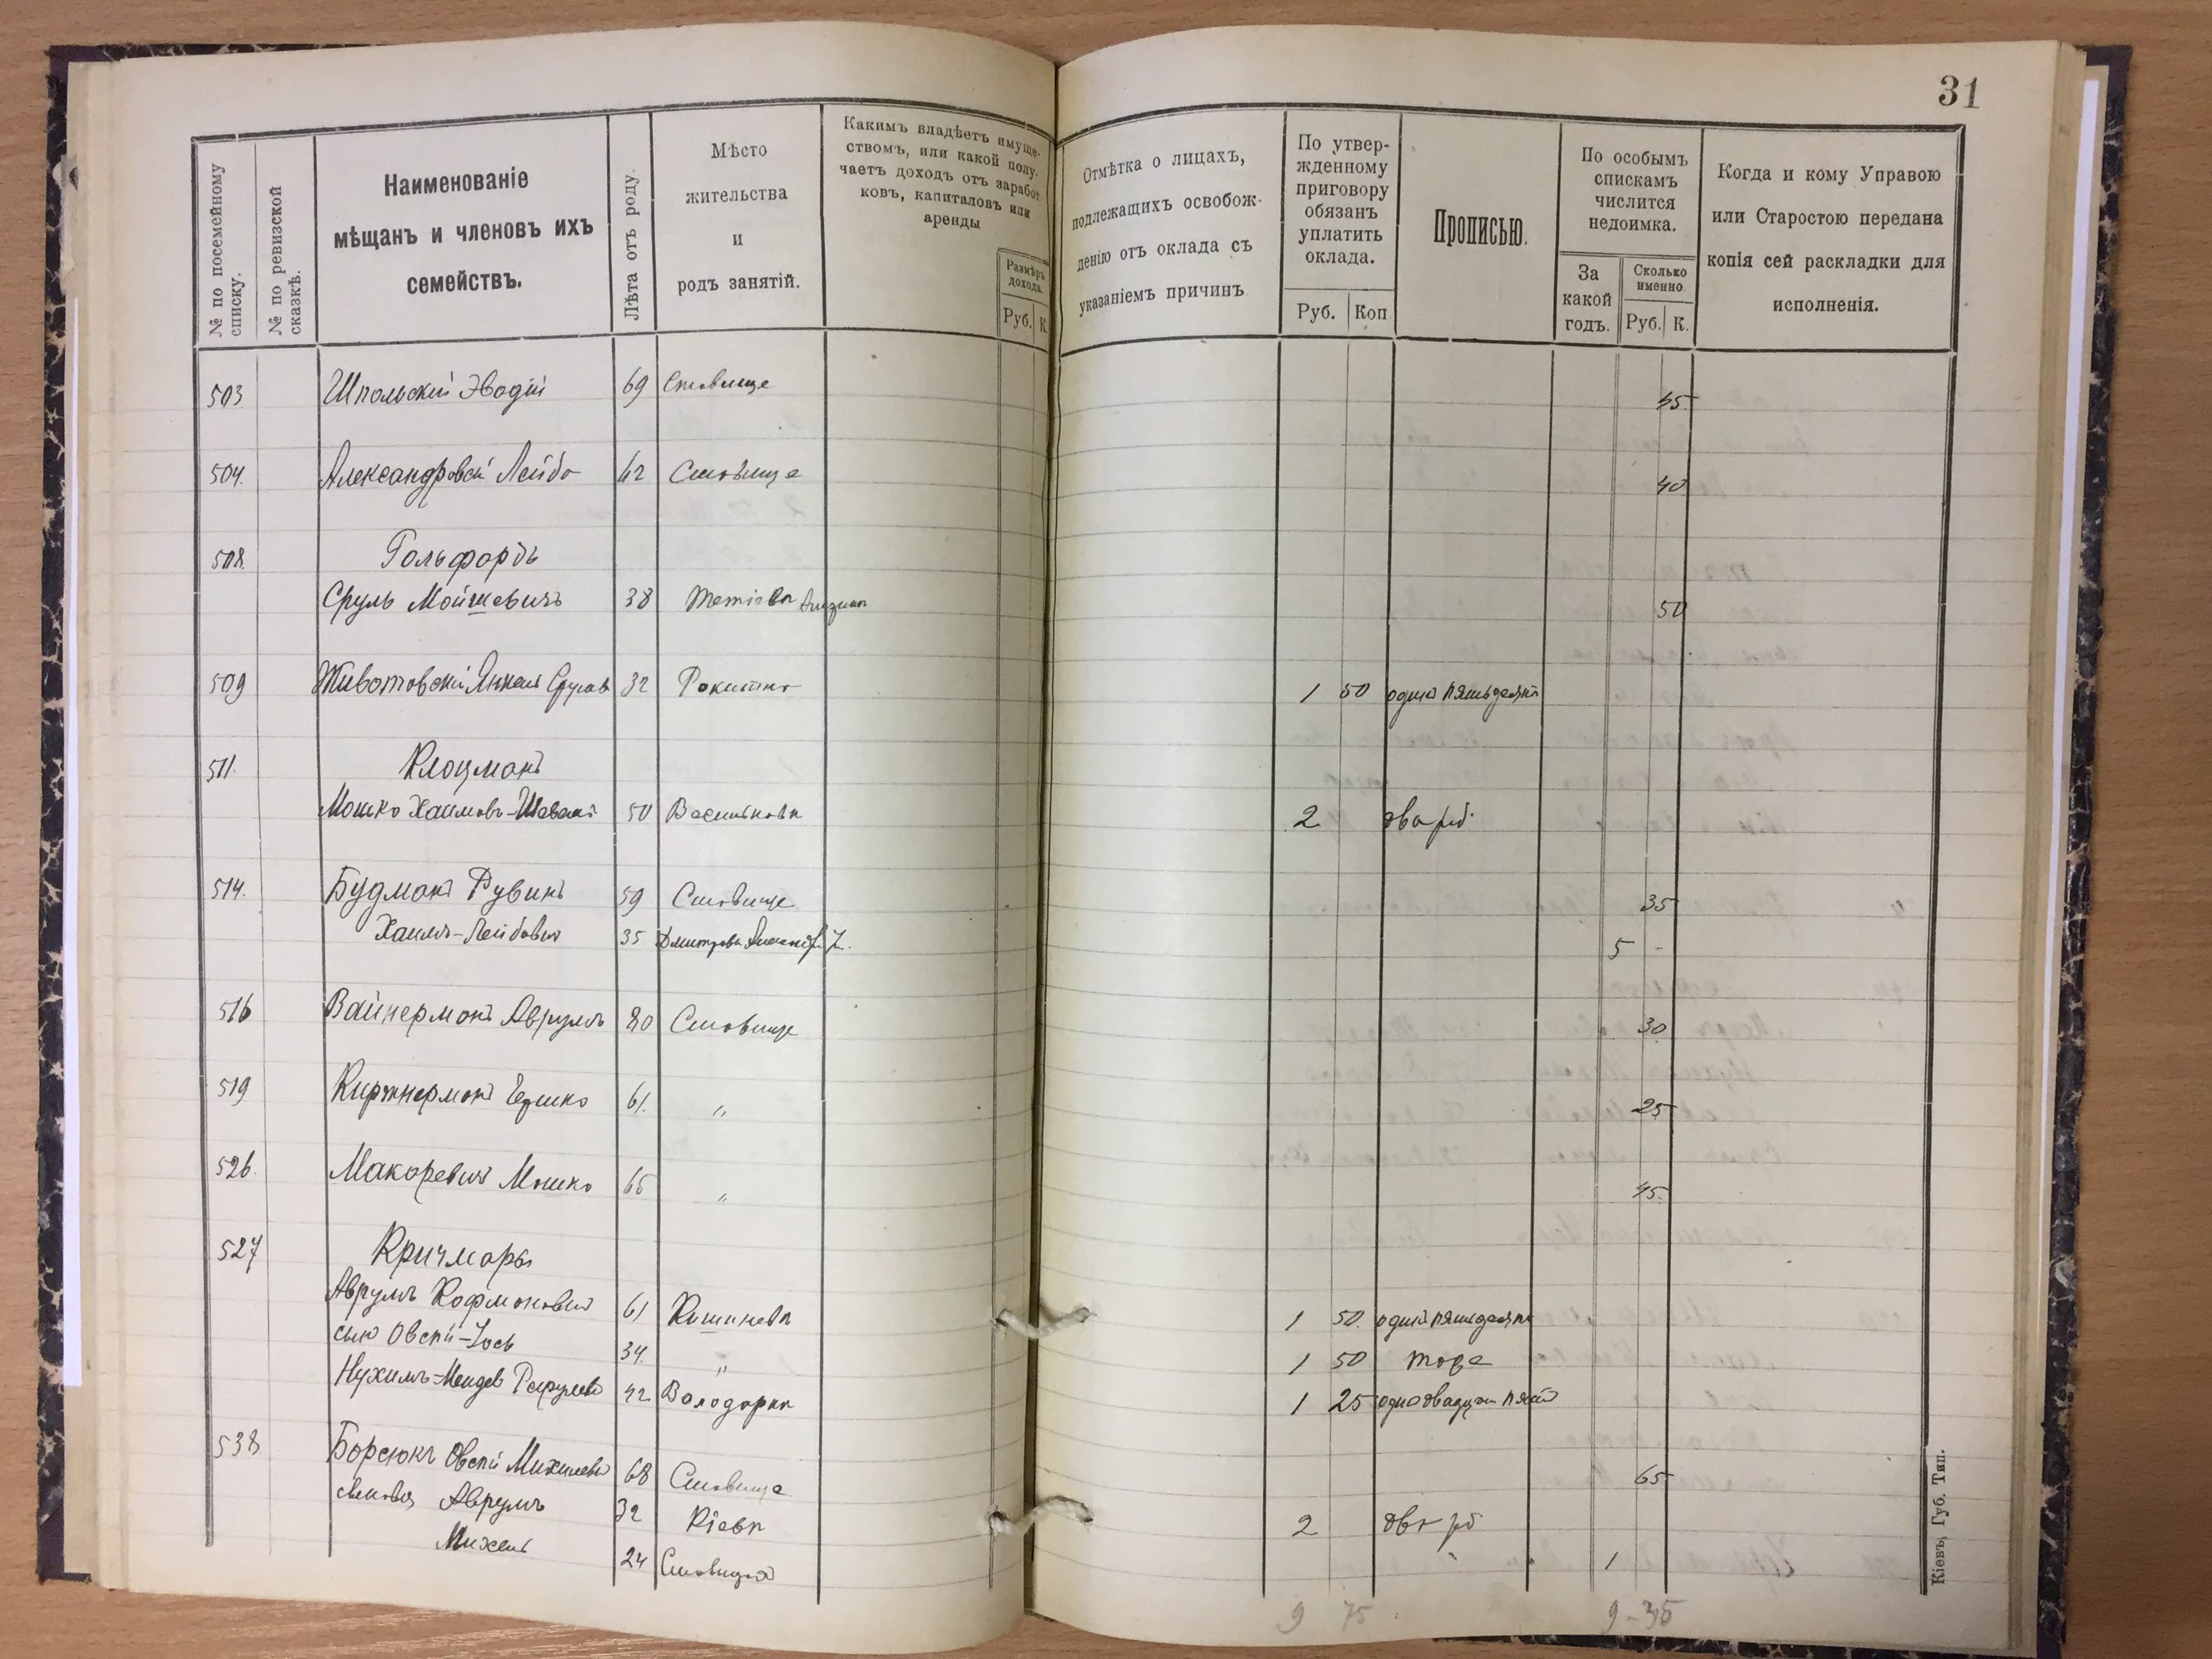 31
№ по посемейному списку.
№ по ревизской сказкѣ.
Наименованіе
мѣщанъ и членовъ ихъ
семействъ.
Лѣта отъ роду.
Мѣсто
жительства
и
родъ занятій.
Какимъ владѣетъ имуще-
ствомъ, или какой полу-
чаетъ доходъ отъ заработ
ковъ, капиталовъ или
аренды
Размѣръ
дохода.
Руб. К.
Отмѣтка о лицахъ,
подлежащихъ освобож-
денію отъ оклада съ
указаніемъ причинъ
По утвер-
жденному
приговору
обязанъ
уплатить
оклада.
Руб. Коп
Прописью.
По особымъ
спискамъ
числится
недоимка.
За
какой
годъ.
Сколько
именно
Руб. К.
Когда и кому Управою
или Старостою передана
копія сей раскладки для
исполненія.
503 Шпольскій 69 Ставище 45.
504. Александровскій Лейбо 62 Ставище 40
508. Гольфартъ
Сруль Мойшевичъ 38 50
509 Животовскій Янкель 32 Рокитно 1 50 одинъ пятьдесятъ
511. Клоцманъ
Мошко Хаимовъ 50 Васильковъ 2 два руб.
514. Будманъ Рувинъ 59 Ставище 35
Хаимъ-Лейбовъ 35 5 -
516 Вайнерманъ Аврумъ 80 Ставище 30
519 61. " 25
526. Макаревичъ Мошко 65 " 45.
527 Кричмаръ
Аврумъ 61 Кишиневъ 1 50. одинъ пятьдесятъ
сынъ Овсѣй-Іось 34. " 1 50 тоже
42 Володарка 1 25
538 Борсюкъ Овсѣй Михилевъ 68 Ставище 65
сыновья Аврумъ 32 Кіевъ 2 два рб
Михель 24 1
9 75 9-35
Кіевъ, Губ. Тип.